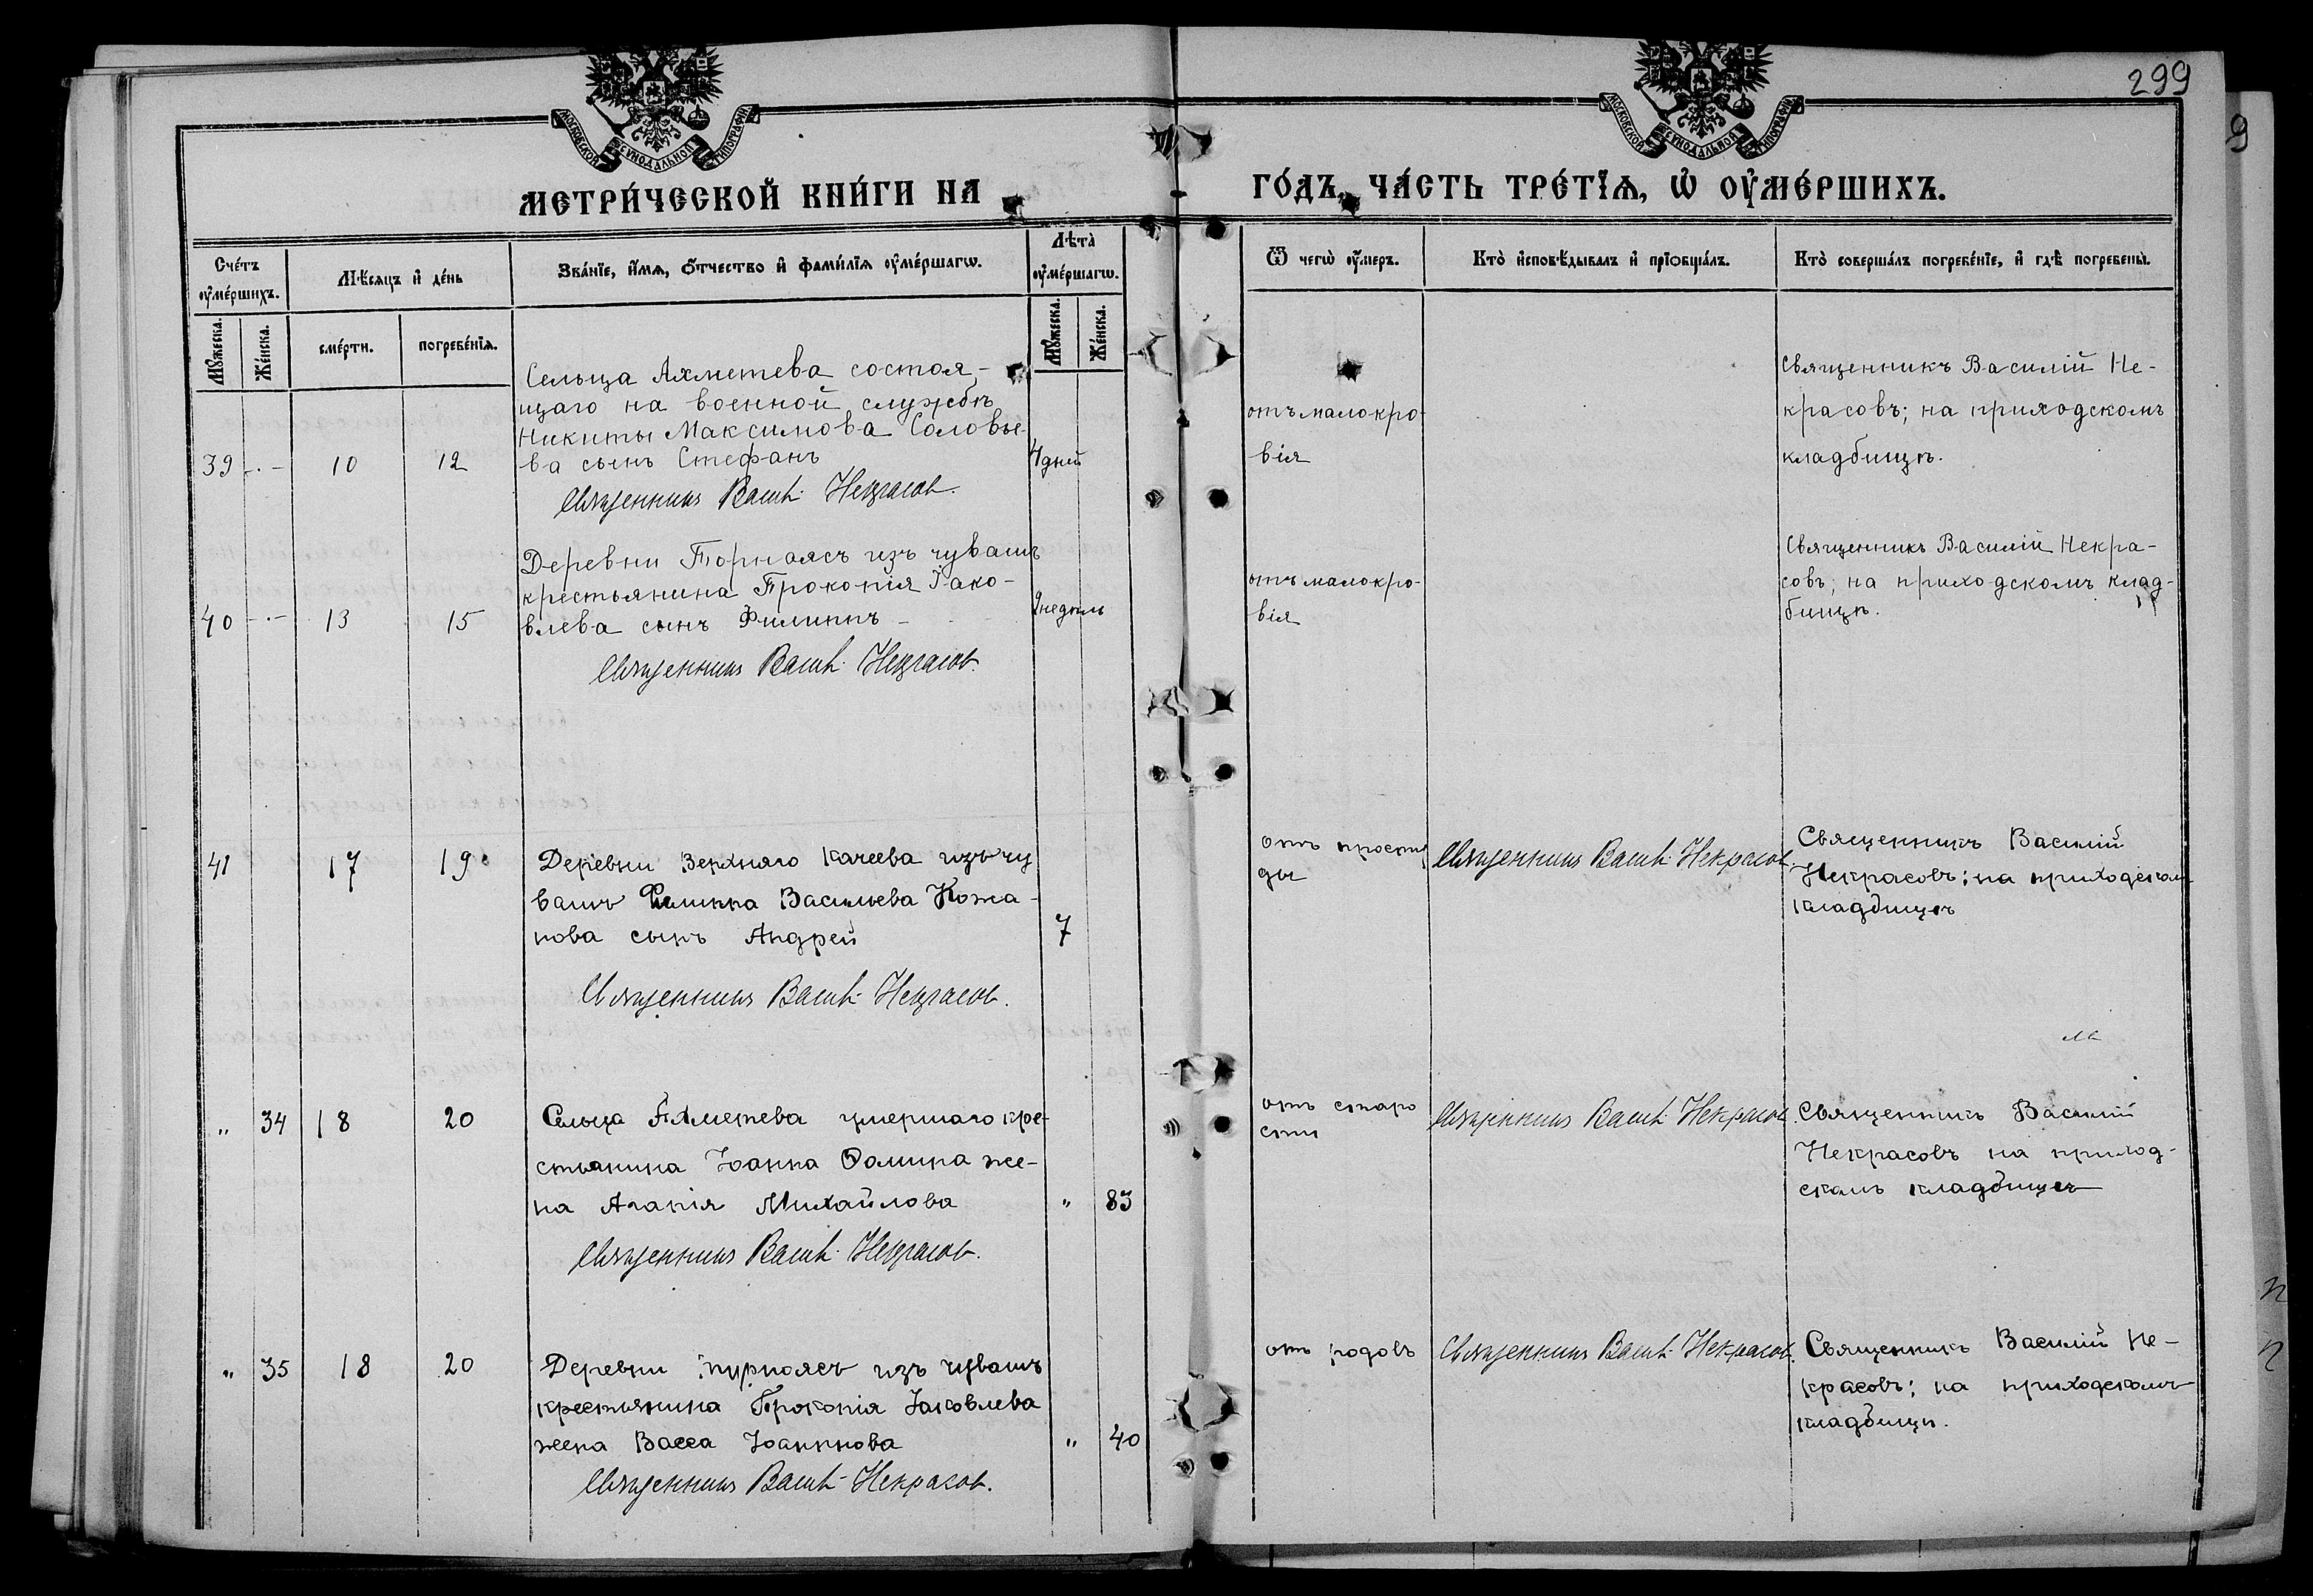 299
9
МОСКОВСКОЙ СѴНОДАЛЬНОЙ ТИПОГРАФІИ
МОСКОВСКОЙ СѴНОДАЛЬНОЙ ТИПОГРАФІИ
МЕТРИ́ЧЕСКОЙ КНИ́ГИ НА
ГО́ДЪ, ЧА́СТЬ ТРЕ́ТІѦ, Ѡ҆ ОУ҆МЕ́РШИХЪ.
Сче́тъ оу҆ме́ршихъ.
Мѣ́сяцъ и҆ де́нь
Зва́нїе, и҆́мѧ, ѻ҆́тчество и҆ фами́лїѧ оу҆ме́ршагѡ.
Лѣта̀ оу҆ме́ршагѡ.
Ѿ чегѡ̀ оу҆́меръ.
Кто̀ и҆сповѣ́дывалъ и҆ прїѡбща́лъ.
Кто̀ соверша́лъ погребе́нїе, и҆ гдѣ̀ погребены̀.
Мꙋ́жеска.
Же́нска.
сме́рти.
погребе́нїѧ.
Мꙋ́жеска.
Же́нска.
Сельца Ахметева состоя-
щаго на военной службѣ
Никиты Максимова Соловье-
39 -·- 10 12 ва сынъ Стефанъ 4 дней
Священникъ Васил. Некрасов.
отъ малокро-
вія
Священникъ Василій Не-
красовъ; на приходскомъ
кладбищѣ.
Деревни Торнаясъ изъ чувашъ
крестьянина Прокопія Іако-
40 -·- 13 15 влева сынъ Филиппъ - 2 недѣль
Священникъ Васил. Некрасов.
отъ малокро-
вія
Священникъ Василій Некра-
совъ; на приходскомъ клад-
бищѣ.
41 17 19 Деревни Верхняго Качеева изъ чу
вашъ Филиппа Васильева Кожа-
нова сынъ Андрей 7
Священникъ Васил. Некрасов.
отъ простуды
Священникъ Васил. Некрасов.
Священникъ Василій
Некрасовъ; на приходском
кладбищѣ
„ 34 18 20 Сельца Ахметева умершаго кре-
стьянина Іоанна Ѳомина же-
на Агапія Михайлова „ 83
Священникъ Васил. Некрасов.
отъ старо
сти
Священникъ Васил. Некрасов.
Священникъ Василій
Некрасовъ на приход-
скомъ кладбищѣ
„ 35 18 20 Деревни Турнаясъ изъ чувашъ
крестьянина Прокопія Іаковлева
жена Васса Іоаннова „ 40
Священникъ Васил. Некрасов.
отъ родовъ
Священникъ Васил. Некрасов.
Священникъ Василій Не-
красовъ; на приходскомъ
кладбищѣ.